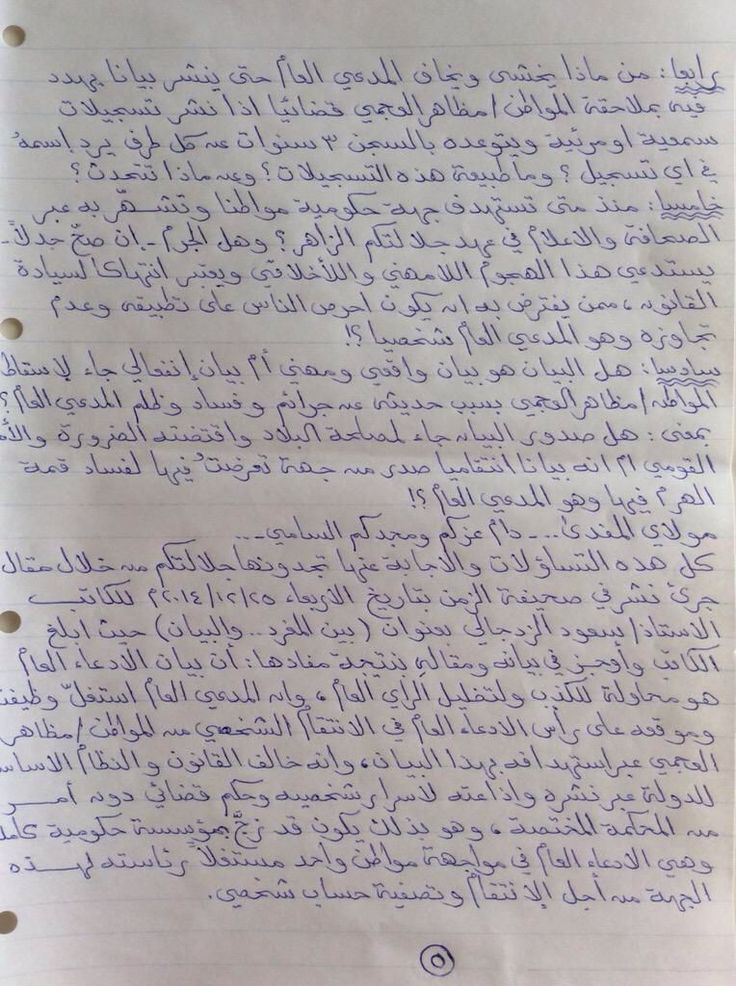 رابعا : من ماذا يخشى ويخاف المدعي العام حتى ينشر بيانا يهدد
فيه بملاحقة المواطن/ مظاهر العجمي قضائيا اذا نشر تسجيلات
سمعية او مرئية ويتوعده بالسجن ٣ سنوات عن كل طرف يرد اسمهُ
في اي تسجيل ؟ وما طبيعة هذه التسجيلات ؟ وعن ماذا تتحدث ؟
خامسا : منذ متى تستهدف جهة حكومية مواطنا وتشهّر به عبر
الصحافة والاعلام في عهد جلالتكم الزاهر ؟ وهل الجرم - إن صحّ جدلاً -
يستدعي هذا الهجوم اللامهني واللاأخلاقي ويعتبر انتهاكا لسيادة
القانون ، ممن يفترض به ان يكون احرص الناس على تطبيقه وعدم
تجاوزه وهو المدعي العام شخصيا ؟!
سادسا : هل البيان هو بيان واقعي ومهني أم بيان إنفعالي جاء لإسقاط
المواطن/ مظاهر العجمي بسبب حديثه عن جرائم وفساد وظلم المدعي العام ؟
بمعنى : هل صدور البيان جاء لمصلحة البلاد واقتضته الضرورة والأمن
القومي ام انه بيانا انتقاميا صدر من جهة تعرضتُ فيها لفساد قمة
الهرم فيها وهو المدعي العام ؟!
مولاي المفدى ... دام عزكم ومجدكم السامي ...
كل هذه التساؤلات والاجابة عنها تجدونها جلالتكم من خلال مقال
جرئ نشر في صحيفة الزمن بتاريخ الاربعاء ٢٠١٤/١٢/٢٥م للكاتب
الاستاذ/ سعود الزدجالي بعنوان (بين المفرد .. والبيان) حيث ابلغ
الكاتب وأوجز في بيانه ومقاله بنتيجة مفادها : أن بيان الادعاء العام
هو محاولة للكذب ولتضليل الرأي العام ، وان المدعي العام استغلّ وظيفته
وموقعه على رأس الادعاء العام في الانتقام الشخصي من المواطن/ مظاهر
العجمي عبر استهدافه بهذا البيان ، وانه خالف القانون والنظام الاساسي
للدولة عبر نشره واذاعته لأسرار شخصيه وحكم قضائي دون أمر
من المحكمة المختصة ، وهو بذلك يكون قد زجّ بمؤسسة حكومية كاملة
وهي الادعاء العام في مواجهة مواطن واحد مستغلاً رئاسته لهذه
الجهة من أجل الإنتقام وتصفية حساب شخصي .
٥